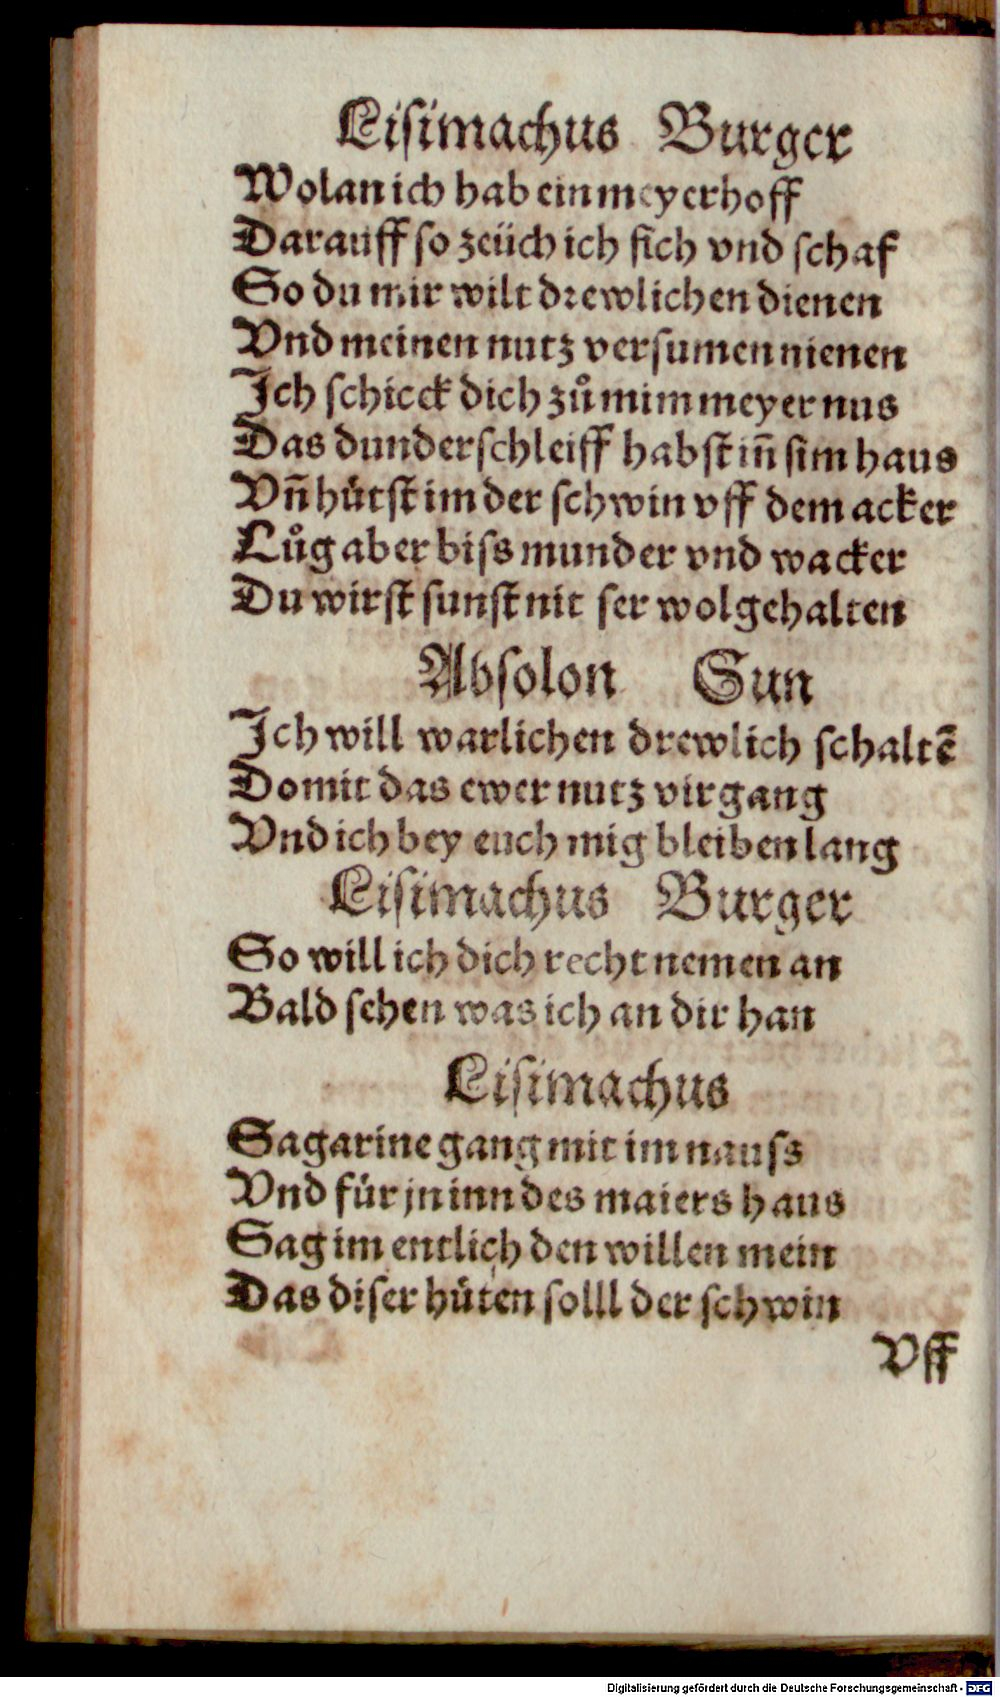 Lisimachus Burger
Wolan ich hab ein meyerhoff
Darauff so zeüch ich fich vnd schaf
So du mir wilt drewlichen dienen
Vnd meinen nutz versumen nienen
Ich schicck dich zů mim meyer nus
Das dunderschleiff habst iñ sim haus
Vñ hütst im der schwin vff dem acker
Lůg aber biss munder vnd wacker
Du wirst sunst nit ser wol gehalten
Absolon Sun
Ich will warlichen drewlich schaltē
Domit das ewer nutz virgang
Vnd ich bey euch mig bleiben lang
Lisimachus Burger
So will ich dich recht nemen an
Bald sehen was ich an dir han
Lisimachus
Sagarine gang mit im nauss
Vnd für jn inn des maiers haus
Sag im entlich den willen mein
Das diser hüten solll der schwin
Vff
Digitalisierung gefördert durch die Deutsche Forschungsgemeinschaft - DFG